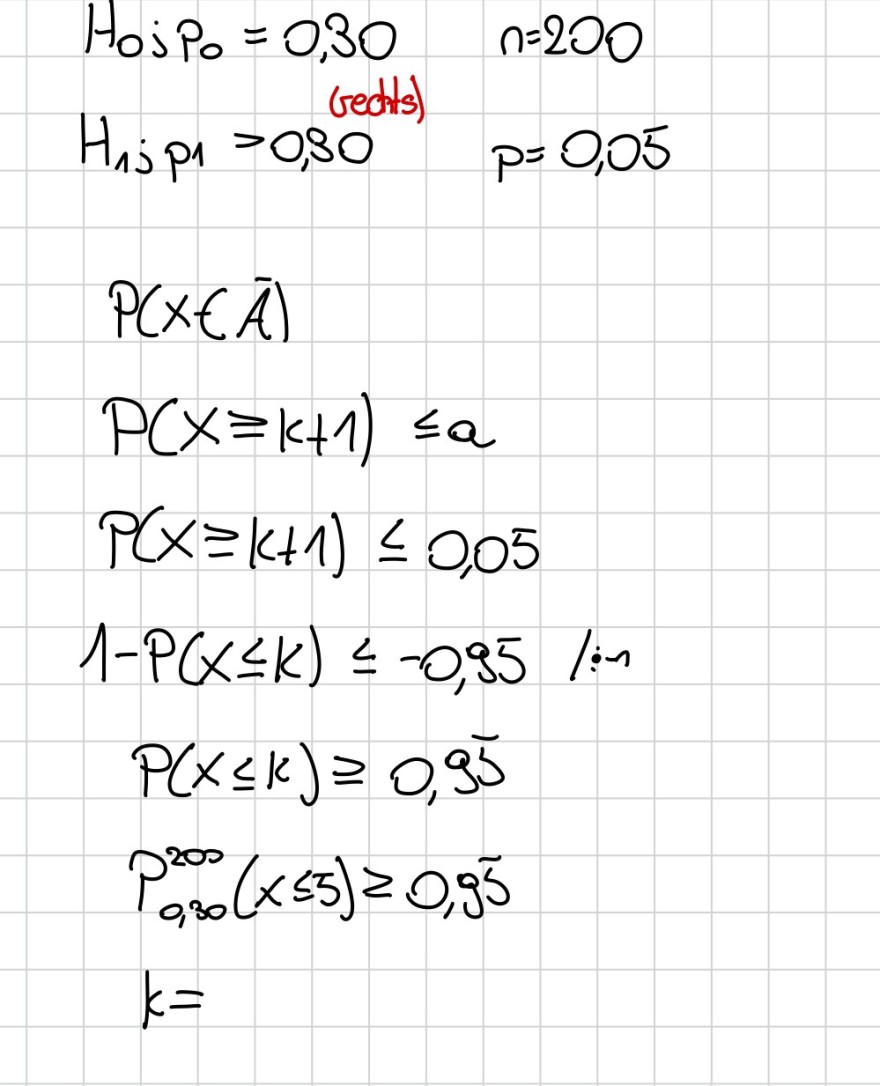 H₀; p₀ = 0,30 n=200
(rechts)
H₁; p1 >0,30 p= 0,05
P(X∈Ā)
P(X≥k+1) ≤a
P(X≥k+1) ≤ 0,05
1-P(X≤k) ≤ -0,95 /:-1
P(X≤k)≥ 0,95
P²⁰⁰₀,₃₀(X≤5)≥0,95
k=